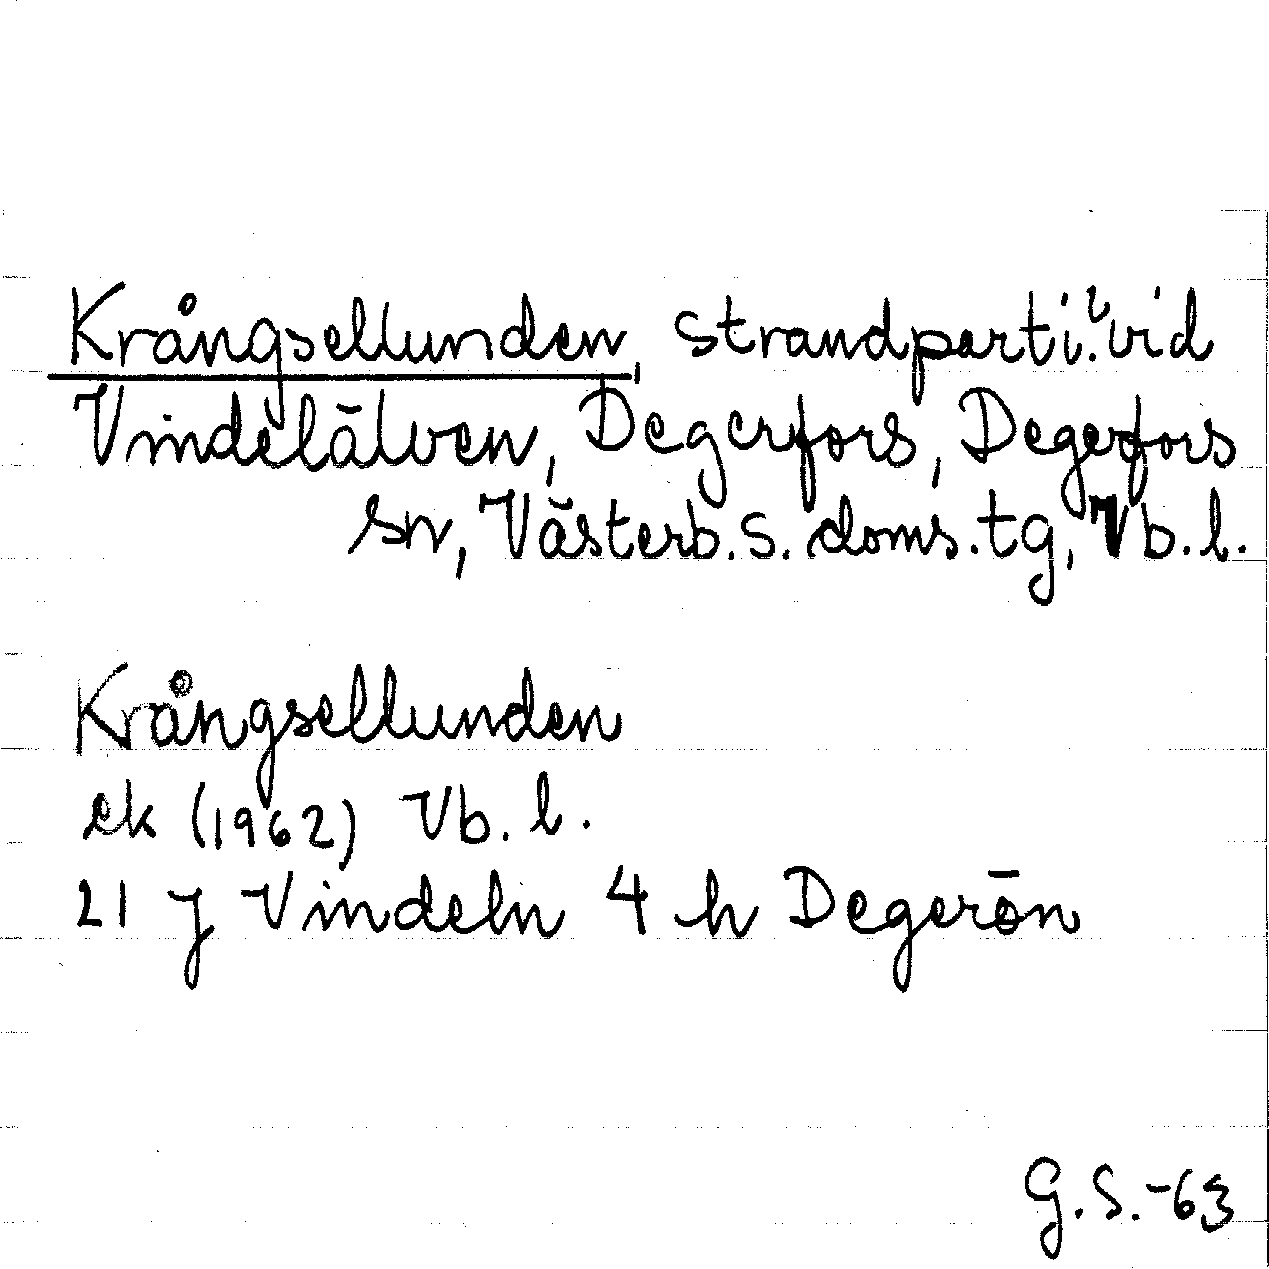 Krångsellunden, strandparti? vid
Vindelälven, Degerfors, Degerfors
sn, Västerb. s. doms. tg, Vb. l.
Krångsellunden
ek (1962) Vb. l.
21 J Vindeln 4 h Degerön
G. S. -63